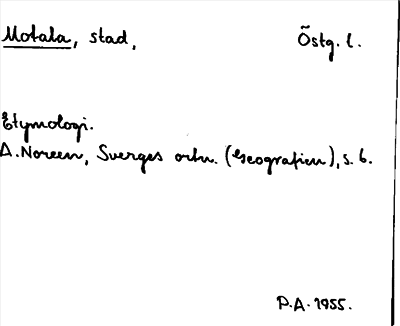 Motala, stad, Östg. l.
Etymologi.
A. Noreen, Sveriges ortn. (Geografien), s. 6.
P.A. 1955.